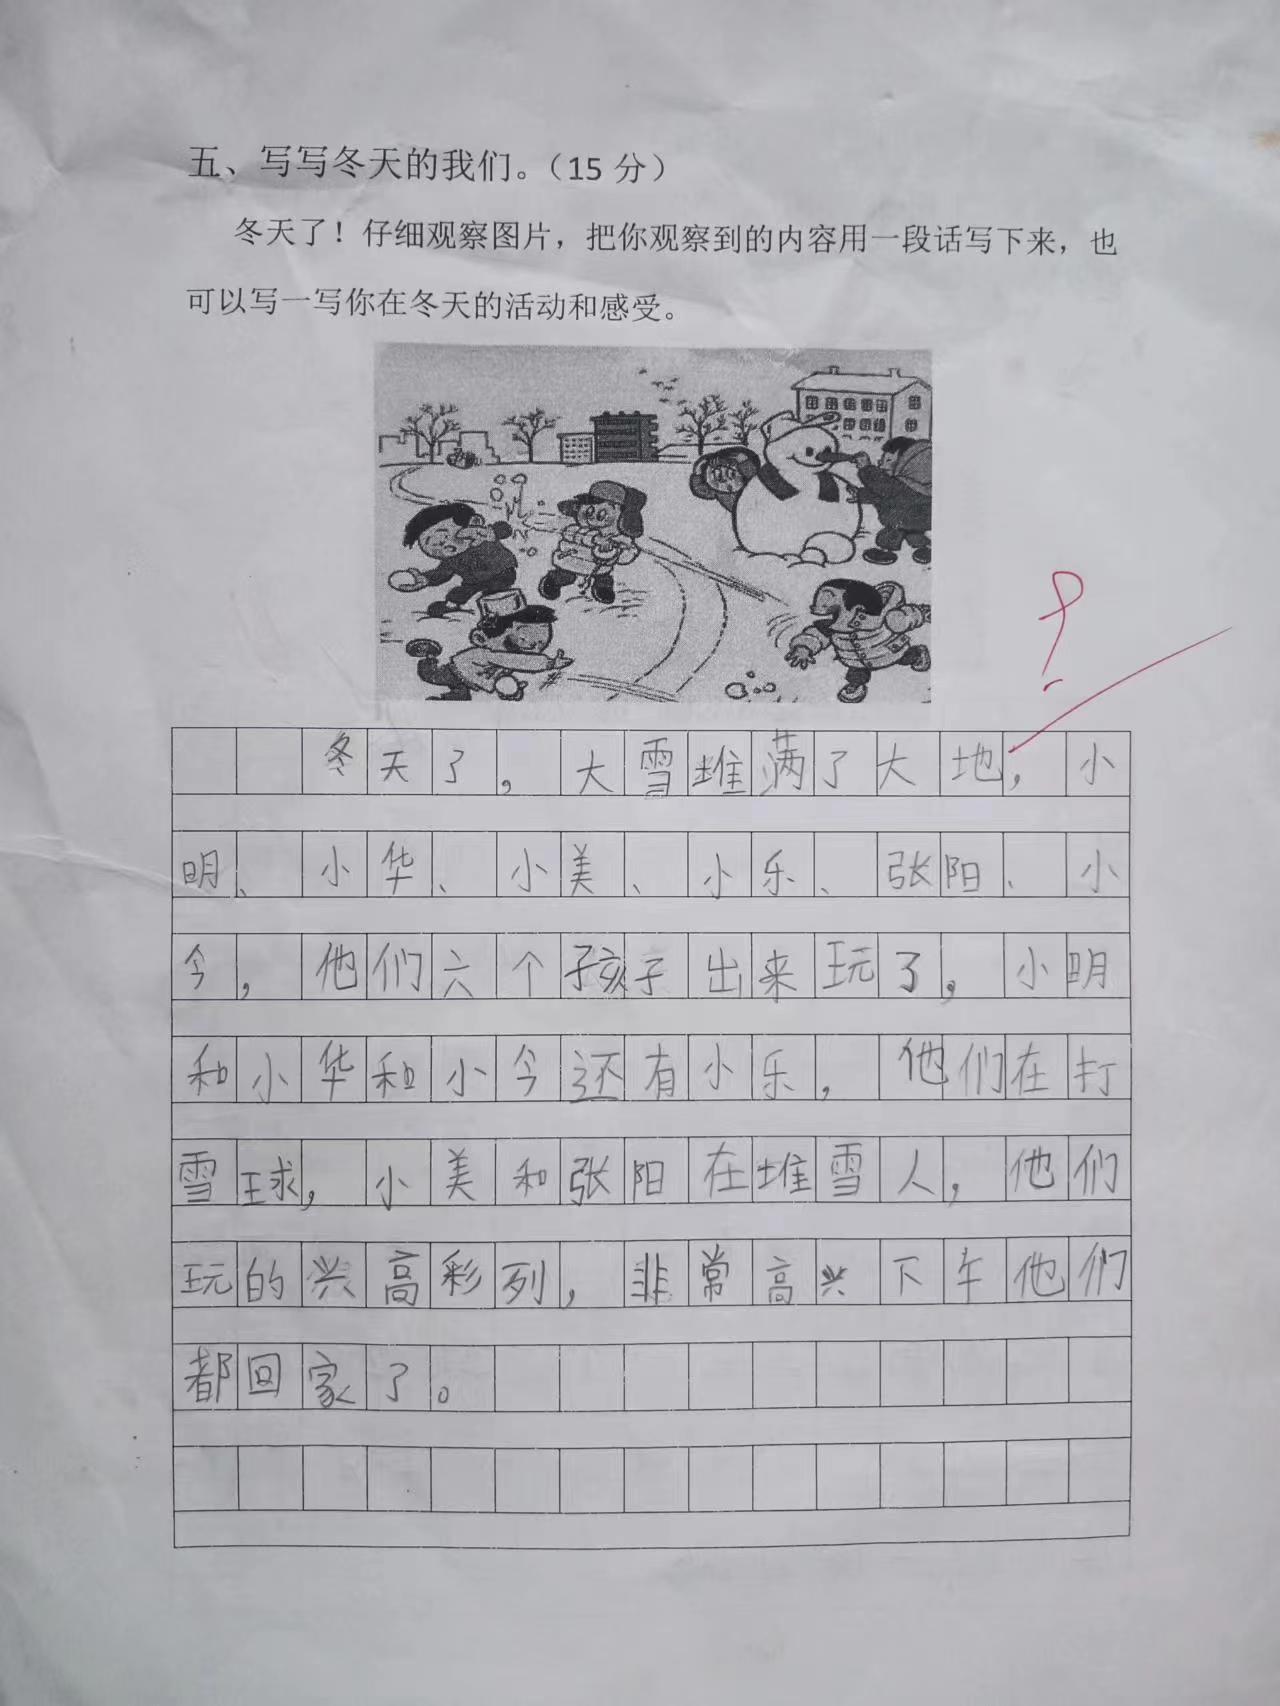 五、写写冬天的我们。（15 分）
冬天了！仔细观察图片，把你观察到的内容用一段话写下来，也
可以写一写你在冬天的活动和感受。
冬天了，大雪堆满了大地，小
明、小华、小美、小乐、张阳、小
今，他们六个孩子出来玩了，小明
和小华和小今还有小乐，他们在打
雪球，小美和张阳在堆雪人，他们
玩的兴高彩列，非常高兴下午他们
都回家了。